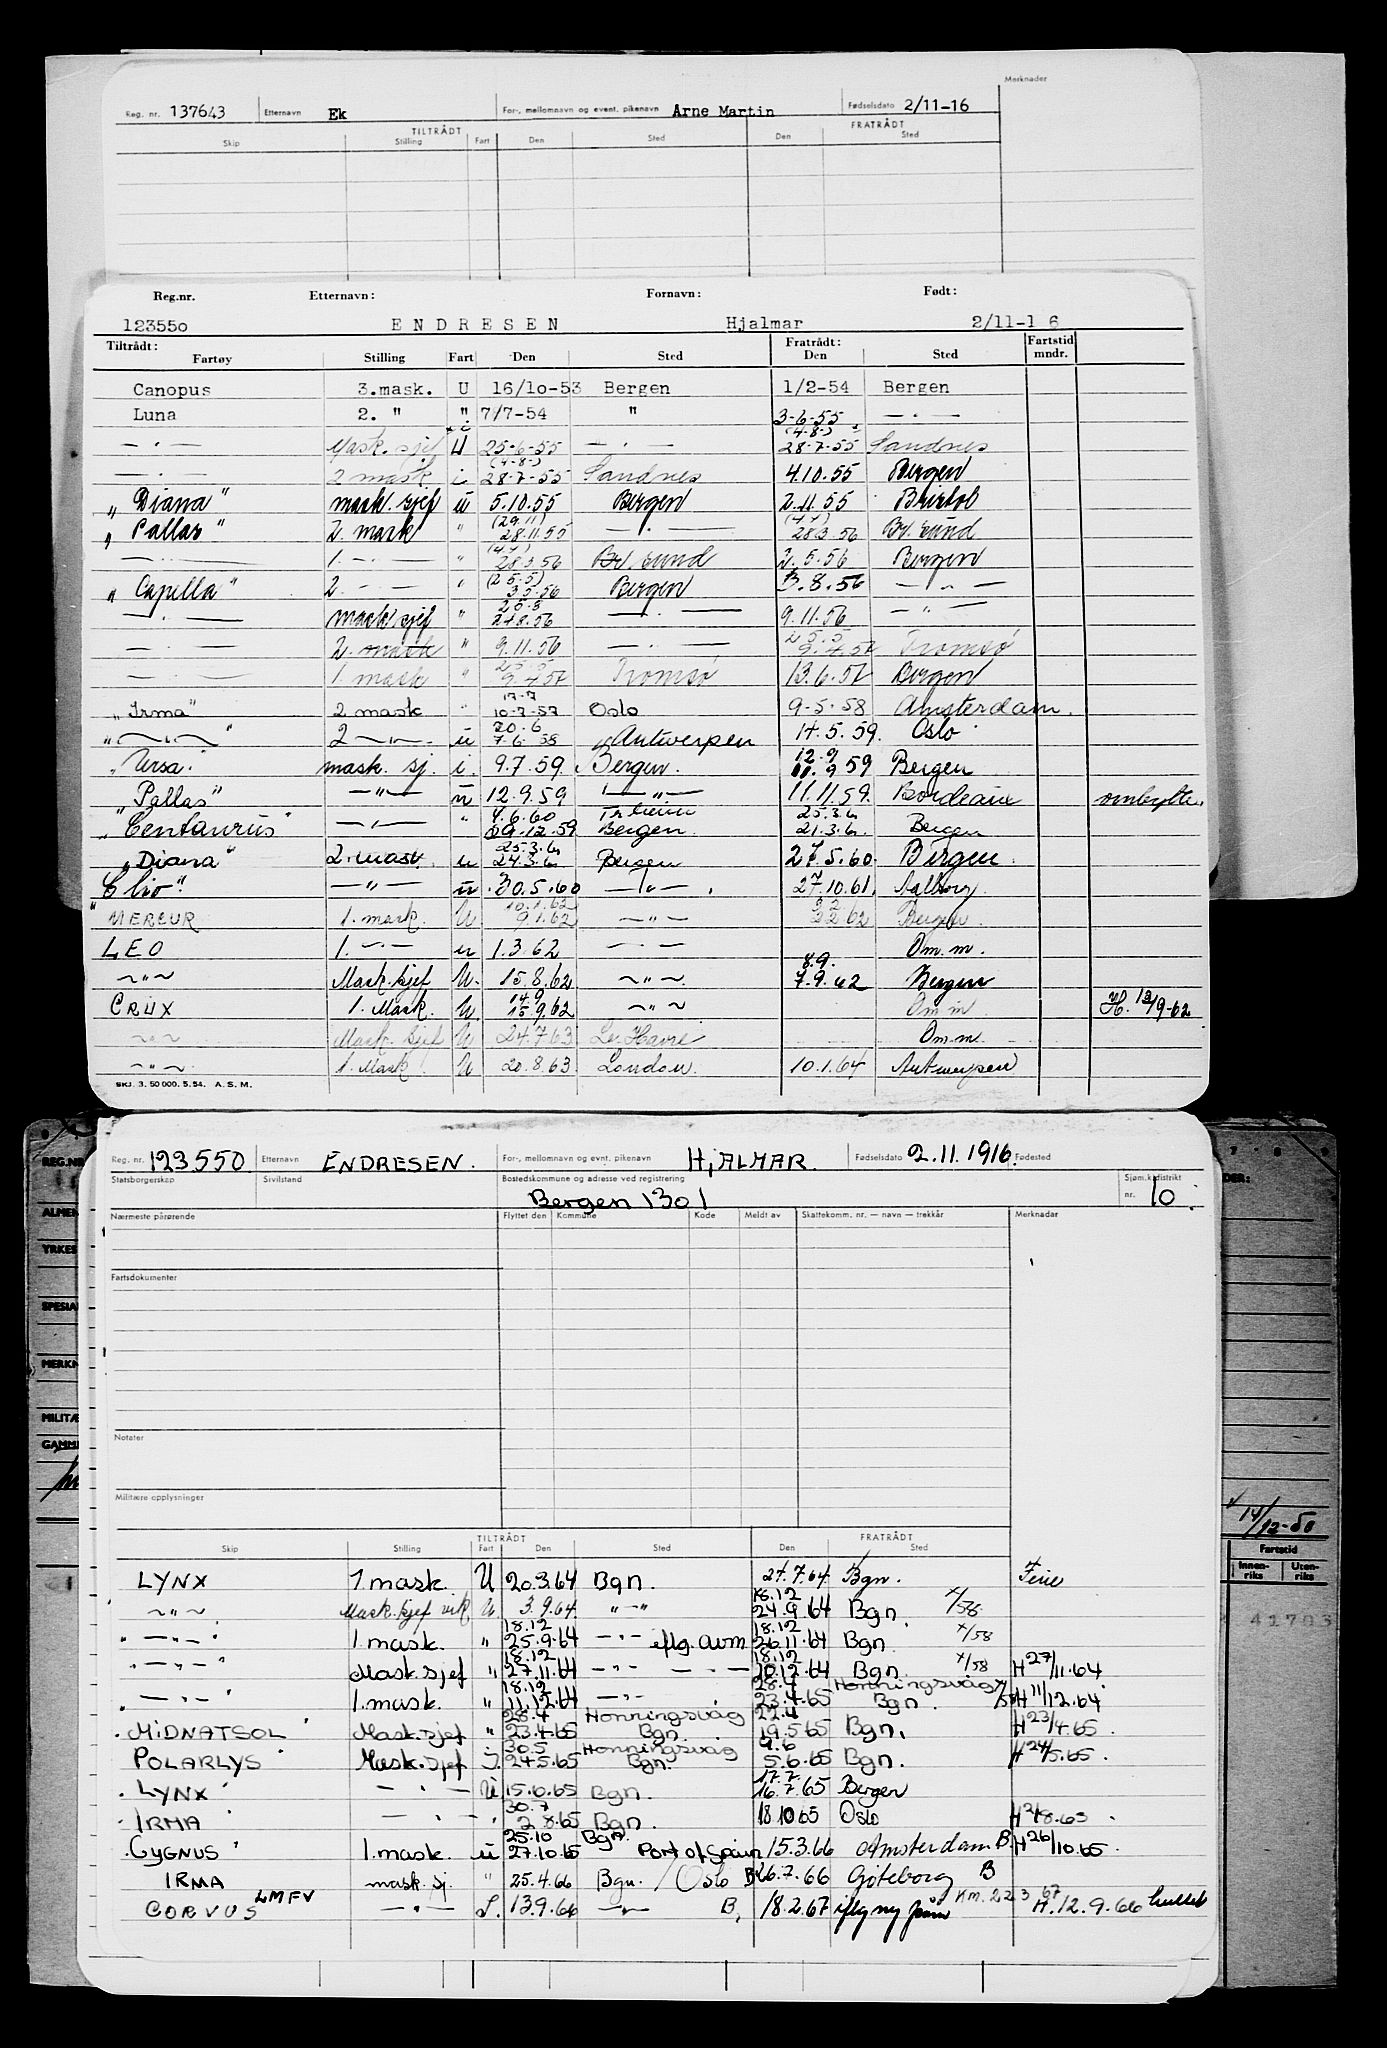 Merknader
Reg. nr. 137643 Etternavn Ek For-, mellomnavn og event. pikenavn Arne Martin Fødselsdato 2/11-16
TILTRÅDT FRATRÅDT
Skip Stilling Fart Den Sted Den Sted
Reg.nr. Etternavn: Fornavn: Født:
123550 ENDRESEN Hjalmar 2/11-1 6
Tiltrådt: Fratrådt: Fartstid
Fartøy Stilling Fart Den Sted Den Sted mndr.
Canopus 3.mask. U 16/10-53 Bergen 1/2-54 Bergen
Luna 2. " " 7/7-54 " 3-6-55 — · —
— · — Mask. sjef U 25-6-55 — · — (4-8-) 28-7-55 Sandnes
— · — 2 mask. i (4-8-) 28-7-55 Sandnes 4.10.55 Bergen
„ Diana " mask. sjef u 5.10.55 Bergen 2.11.55 Bristol
„ Pallas " 2. mask " (29.11) 28.11.55 — · — (4.4) 28.3.56 Br. sund
— · — 1. — · — " (4.4) 28.3.56 Br. sund 2.5.56 Bergen
„ Capella " 2 — · — " (25.5) 3.5.56 Bergen 3.8.56 — " —
— · — mask. sjef " 25.8 — · — 9.11.56 — " —
— · — 2. mask " 9.11.56 — · — Tromsø
— · — 1. mask " 9.4.57 Tromsø 13.6.57 Bergen
„ Irma " 2 mask " 17-7 10-7-57 Oslo 9-5-58 Amsterdam.
„ — " — " 2 — " — u 20.6 7-6-58 Antwerpen 14.5.59. Oslo
„ Ursa. mask. sj. i. 9.7.59. Bergen. 12.9 59 Bergen
„ Pallas " — " — u 12.9.59 — " — 11.11.59. Bordeaux ombytte.
„ Centaurus " — " — " 4.6.60 29.12.59 Tr.heim Bergen. 25.3.6 21.3.6. Bergen
„ Diana " 2. mask. u 25.3.6 24.3.6 Bergen 27.5.60. Bergen.
„ Clio " — " — u 30.5.60 — " — 27.10.61. Aalborg.
MERCUR 1. mask. U 10.1.62 9.1.62 — " — 2.2.62 Bergen
LEO 1. — · — u 1.3.62 — · — Om.m.
— " — Mask. sjef U. 15.8.62 — " — 8.9. 7.9.62 Bergen
CRUX 1. Mask. U. 14.9 15.9.62 — " — Om.m H. 13/9-62
— " — Mask. sjef U 24.7.63 Le Havre Om.m.
— " — 1. Mask U 20.8.63 London. 10.1.64 Antwerpen
SKJ. 3. 50 000. 5. 54. A. S. M.
Reg. nr. 123550 Etternavn ENDRESEN. For-, mellomnavn og evnt. pikenavn HJALMAR. Fødselsdato 2.11.1916. Fødested
Statsborgerskap Sivilstand Bostedskommune og adresse ved registrering Sjøm.k.distrikt
Bergen 1301 nr. 10.
Nærmeste pårørende Flyttet den Kommune Kode Meldt av Skattekomm. nr. — navn — trekkår Merknader
Fartsdokumenter
Notater
Militære opplysninger
TILTRÅDT FRATRÅDT
Skip Stilling Fart Den Sted Den Sted
LYNX 1. mask. U 20.3.64 Bgn. 27.7.64 Bgn. Ferie
— " — Mask. sjef vik U 3.9.64. " — " 18.12 24.9.64 Bgn. x/58
" — " — " 1. mask. " 18.12 25.9.64 — " — eflg. avm 18.12 26.11.64 Bgn x/58
" — " — " Mask. sjef " 18.12 27.11.64 — " — — · — 18.12 10.12.64 Bgn. x/58 H 27/11.64
" — " — " 1. mask. " 18.12 11.12.64 — " — 28.4 23.4.65 Honningsvåg Bgn. H 11/12.64
MIDNATSOL Mask. sjef " 28.4 23.4.65 Honningsvåg Bgn. 22.4 19.5.65 Bgn. H 23/4.65.
POLARLYS Mask. sjef I. 30.5 24.5.65 Honningsvåg Bgn. 9.6 5.6.65 Bgn. H 24/5.65.
LYNX — · — U 15.6.65 Bgn. 17.7 16.7.65 Bergen
IRMA — · — " 30.7 2.8.65 Bgn. 18.10.65 Oslo
CYGNUS 1. mask. u 25.10 27.10.65 Bgn. Port of Spain 15.3.66 Amsterdam B. H 26/10.65.
IRMA mask. sj. " 25.4.66 Bgn. / Oslo B 26.7.66 Göteborg B
CORVUS LMFV — " — S. 13.9.66 — " — B, 18.2.67 iflg ny Km. 223 67 H. 12.9.66
REG.NR
ALMEN
YRKES
SPESIAL
MERKN
MILITÆ
GAMM
7 8 9
DER:
14/12-50
Fartstid
Innen-riks Uten-riks
41703